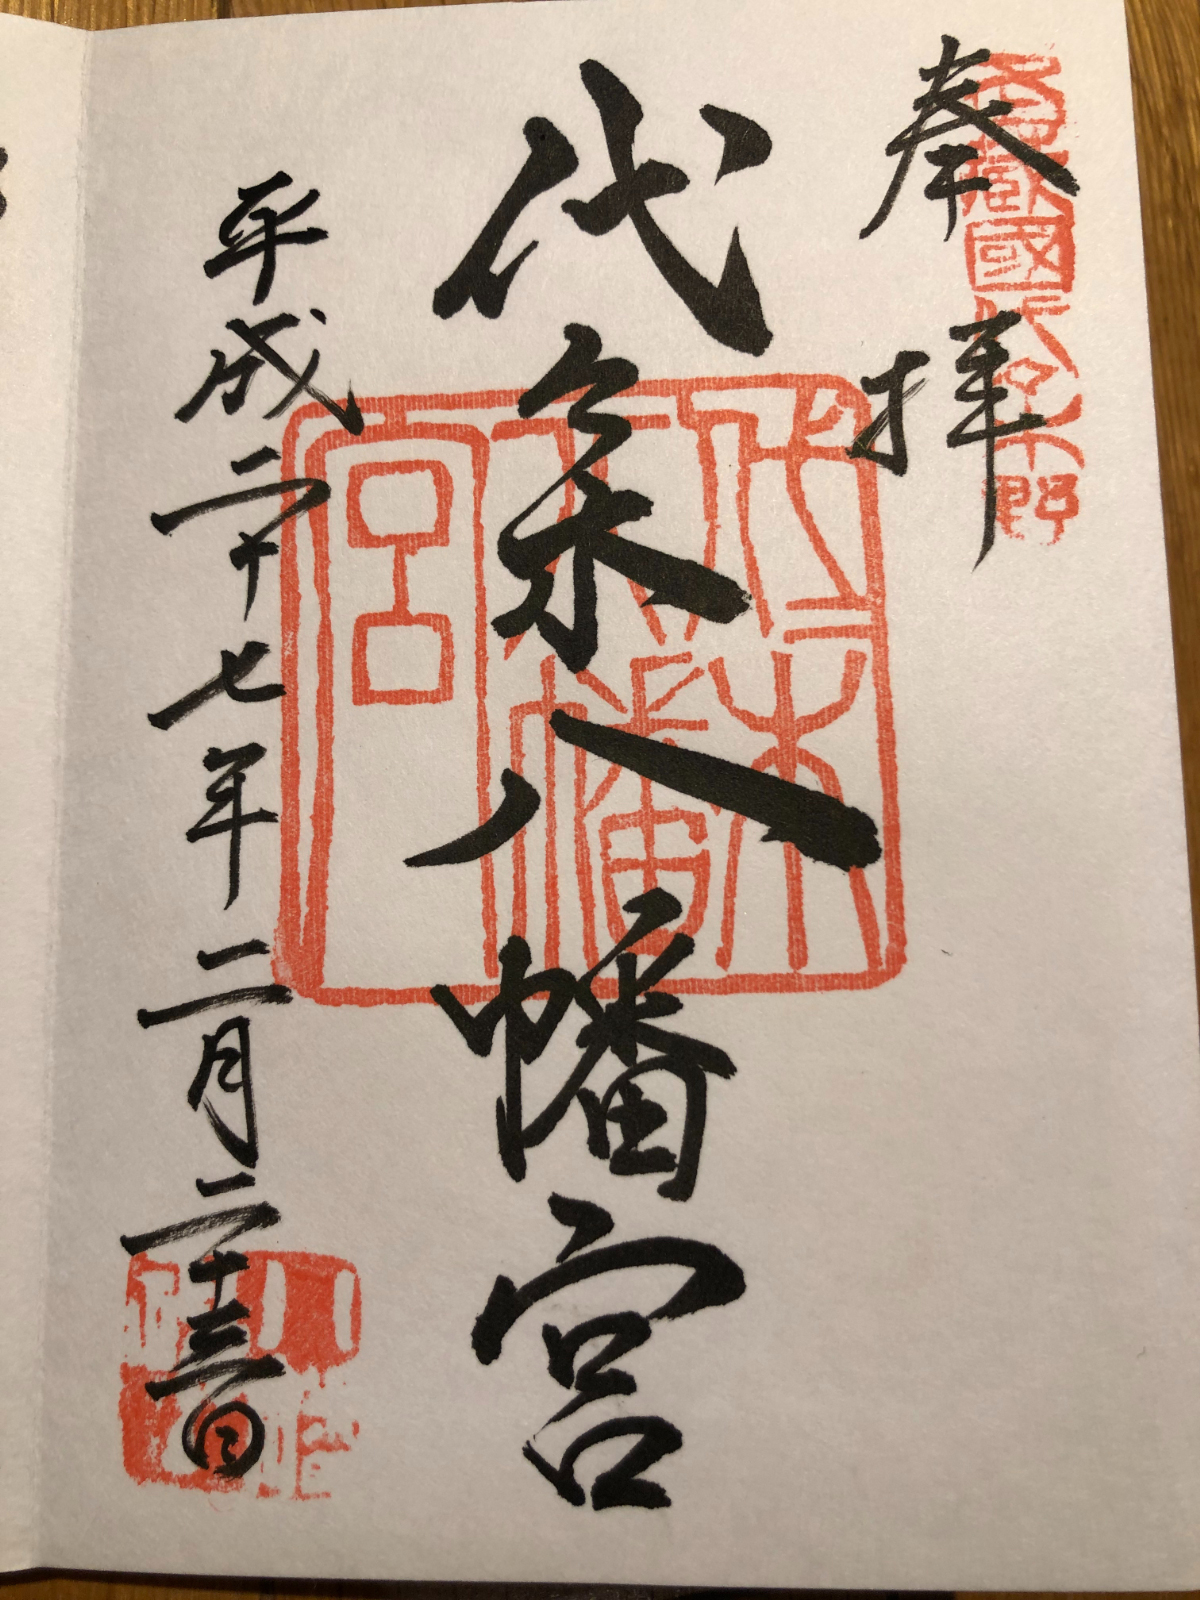 武藏國代々木野
奉拝
代々木八幡宮
代々木八幡宮
平成二十七年二月二十三日